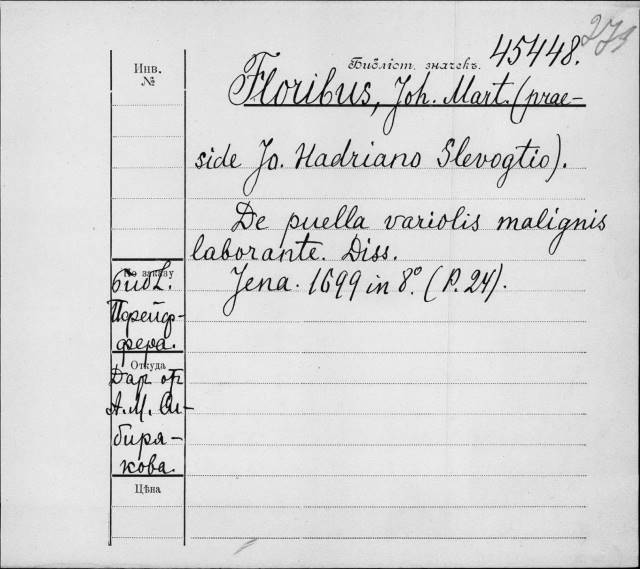 273
Библіот. значекъ. 45448.
Инв.
№
Floribus, Joh. Mart. (prae-
side Jo. Hadriano Slevogtio).
De puella variolis malignis
laborante. Diss.
Jena. 1699 in 8º. (P. 24).
По заказу
библ.
Пфейф-
фера.
Откуда
Дар от
А. М. Си-
биря-
кова.
Цѣна